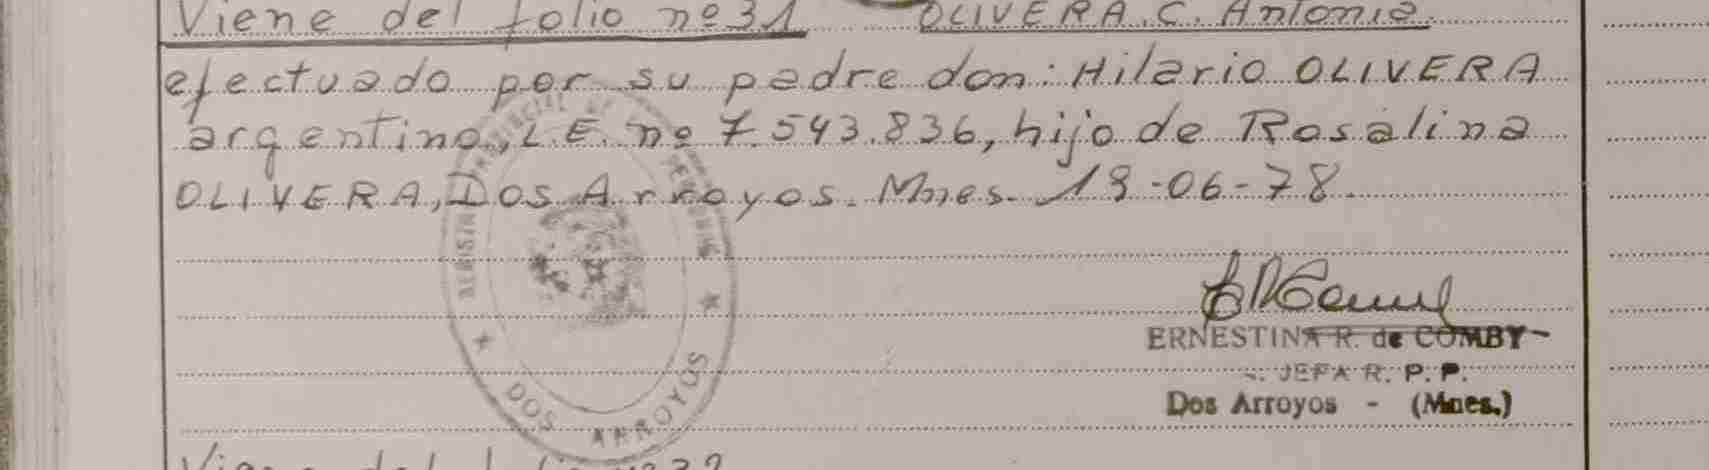 Viene del folio nº 31 OLIVERA. C. Antonia.
efectuado por su padre don: Hilario OLIVERA
argentino, L.E. nº 7.543.836, hijo de Rosalina
OLIVERA, Dos Arroyos. Mnes. 19-06-78.
ERNESTINA R. de COMBY
JEFA R. P. P.
Dos Arroyos - (Mnes.)
DOS ARROYOS